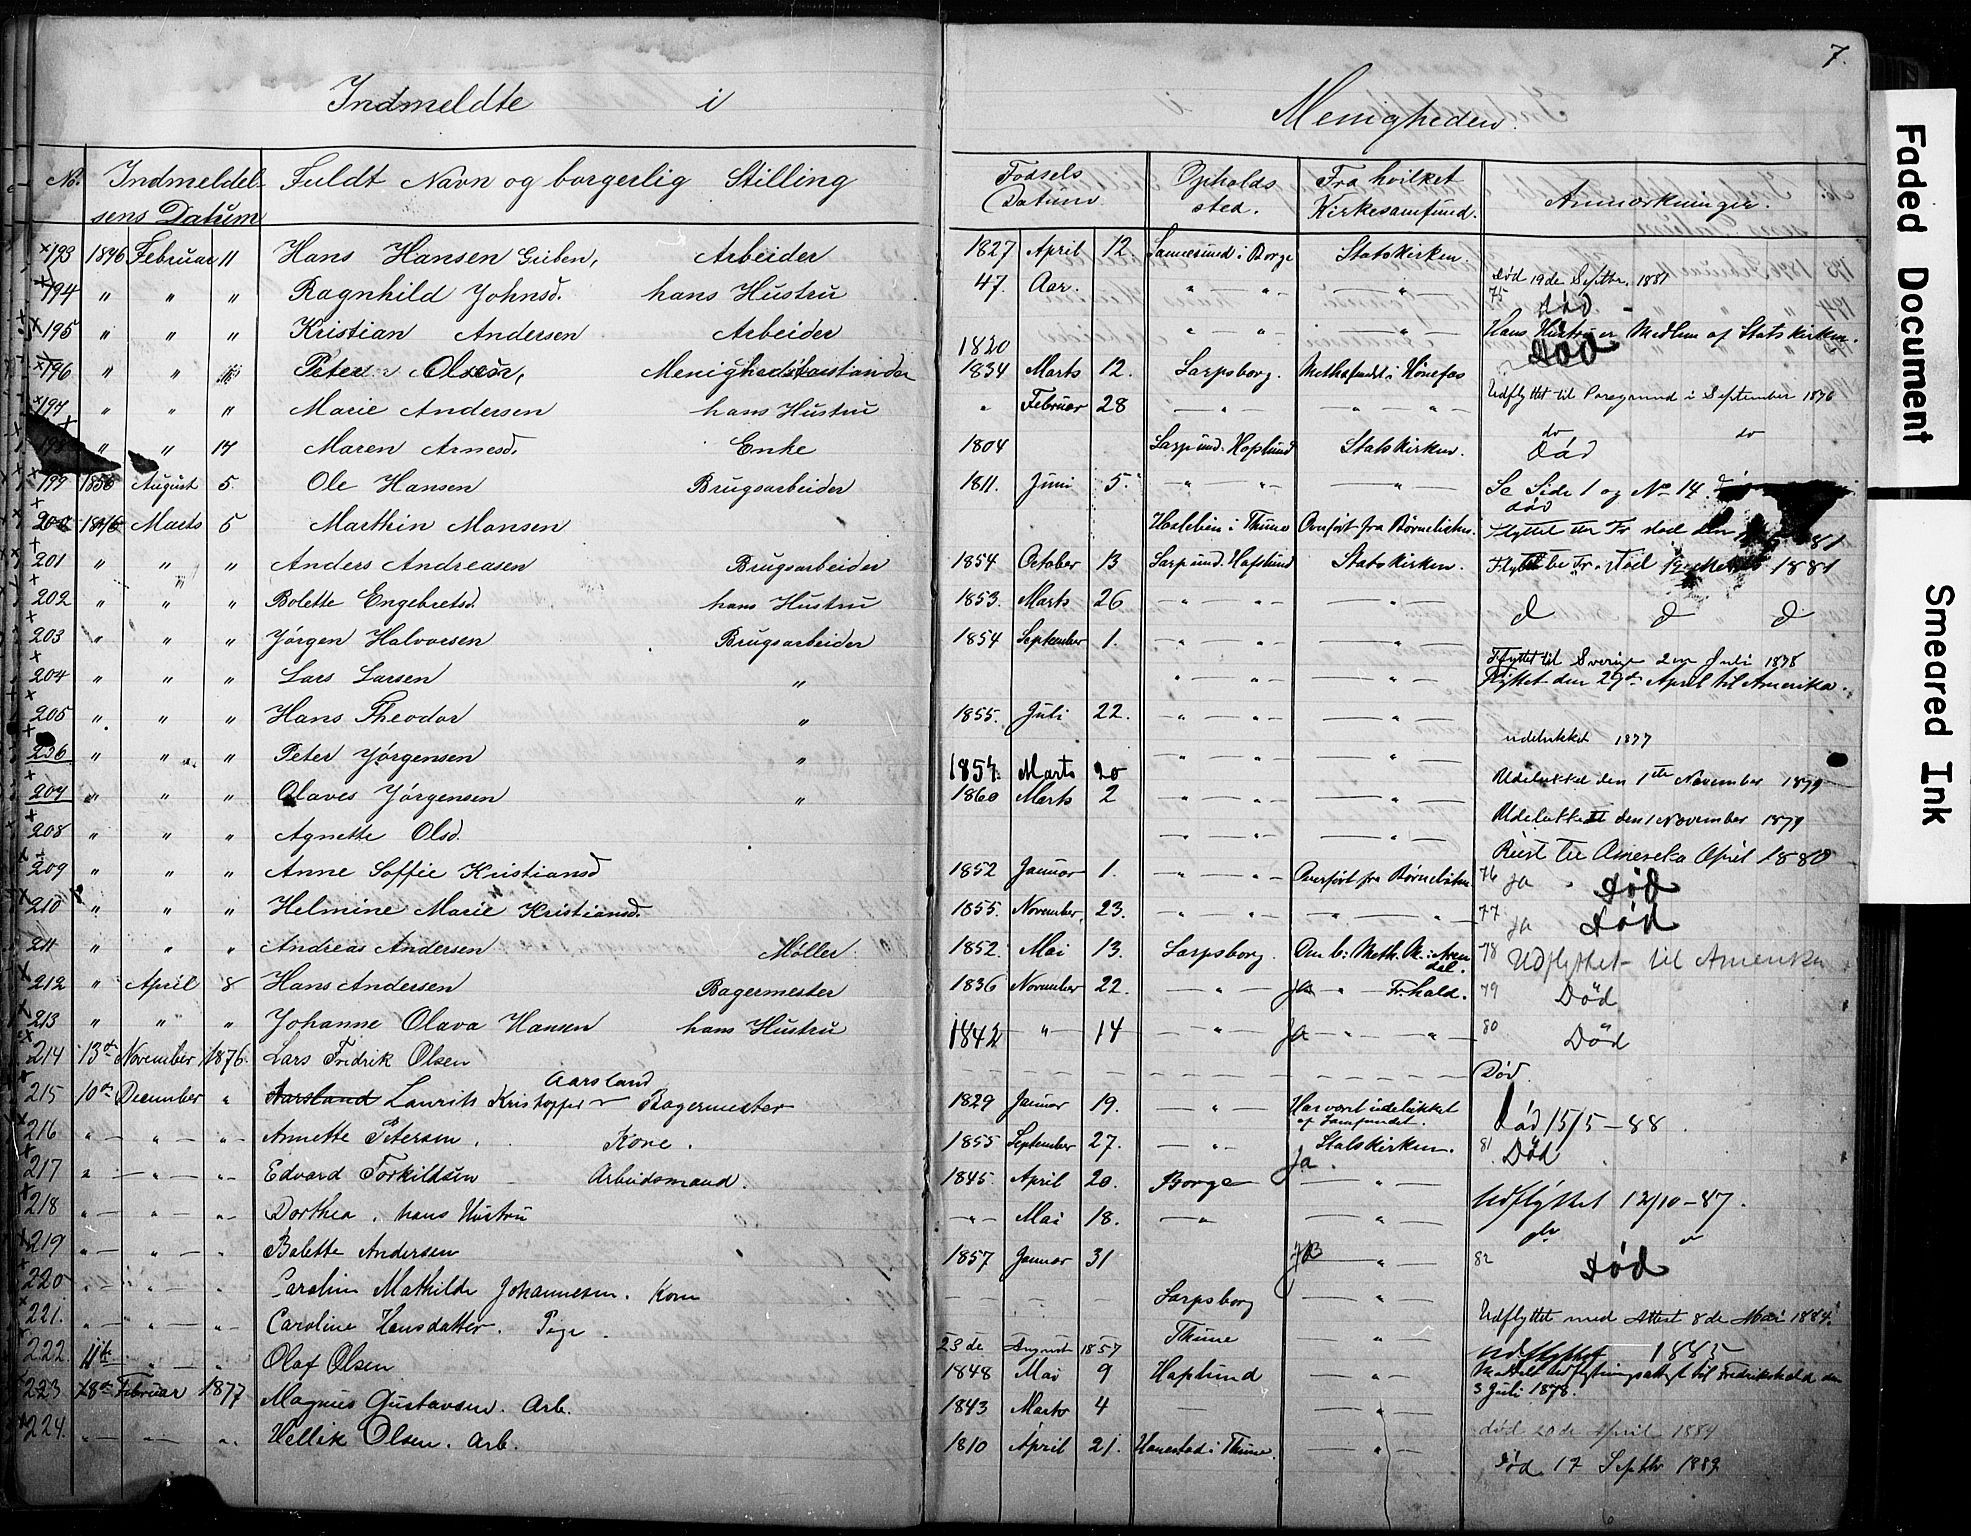 7.
Indmeldte i Menigheden.
No. Indmeldelsens Datum Fuldt Navn og borgerlig Stilling Fødsels Datum Opholds sted. Fra hvilket Kirkesamfund. Anmærkninger.
193 1876 Februar 11 Hans Hansen Arbeider 1827 April 12. Sannesund i Borge Statskirken. Død 19de Septbr. 1881
194 " " " Ragnhild Johnsd. hans Hustru 47. Aar. " " " 75 Død
195 " " " Kristian Andersen Arbeider 1820 " " " Hans Hustru er Medlem af Statskirken. Død
196 " " " Peter Olsen, Menighedsforstander 1834 Marts 12. Sarpsborg. Methosundet i Hønefos Udflyttet til Porsgrund i September 1876
197 " " " Marie Andersen hans Hustru " Februar 28 " " " do do
198 " " 17 Maren Arnesd. Enke 1804 Sarp und. Hafslund Statskirken. Død
199 1856 August 5. Ole Hansen Brugsarbeider 1811. Juni 5. " " " Se Side 1 og No 14. død
200 1876 Marts 5 Marthin Hansen i Thune Overført fra Børnelisten. Flyttet til Fr. død den 81
201 " " " Anders Andreasen Brugsarbeider 1854 October 13 Sarp und. Hafslund Statskirken. Flyttet til Fr. død 1881
202 " " " Bolette Engebretsd. hans Hustru 1853. Marts 26 " " " d d d
203 " " " Jørgen Halvorsen Brugsarbeider 1854 September 1. " " " Flyttet til Sverige 2en Juli 1878
204 " " " Lars Larsen " " " " Flyttet den 29de April til Amerika.
205 " " " Hans Theodor " 1855. Juli 22. " " " udelukket 1877
206 " " " Peter Jørgensen " 1857. Marts 20 " " " Udelukket den 1ste November 1879
207 " " " Olaves Jørgensen " 1860 Marts 2 " " " Udelukket den 1 November 1879
208 " " " Agnette Olsd. " " " Reist til Amerika April 1880
209 " " " Anne Soffie Kristiansd 1852 Januar 1. " " Overført fra Børnelisten 76 Ja Død
210 " " " Helmine Marie Kristiansd. 1855. November 23. " " " " 77 Ja Død
211 " " " Andreas Andersen Møller. 1852. Mai 13. Sarpsborg. Meth. M. i Arendal. 78 Udflyttet til Amerika
212 " April 8 Hans Andersen Bagermester 1836 November 22. " Ja " Fr.hald. 79 Død
213 " " " Johanne Olava Hansen hans Hustru 1842 " 14 " Ja " " 80 Død
214 13de November 1876. Lars Fredrik Olsen Død.
215 10de December " Aarsland Laurits Kristoffer Aarsland Bagermester 1829 Januar 19. " Har været udelukket af Samfundet. Død 15/5-88
216 " " " Annette Petersen. Kone. 1855 September 27. " Statskirken. Ja. 81 Død
217 " " " Edvard Torkildsen Arbeidsmand. 1845. April 20. Borge " Udflyttet 12/10-87.
218 " " " Dorthea, hans Hustru " Mai 18. " "
219 " " " Bolette Andersen 1857 Januar 31 Ja " 82 Død
220 " " " Caroline Mathilde Johannesen. Kone Sarpsborg " Udflyttet med Attest 8de Mai 1884.
221. " " " Caroline Hansdatter. Pige. 23de August 1857 Thune " Udflyttet 1885
222. 11te " " Olaf Olsen 1848 Mai 9 Hafslund " til Fredrikshald den 3 Juli 1878.
223 18de Februar 1877 Magnus Gustavsen. Arb. 1843 Marts 4 " død 20de April 1884
224. " " " Hellik Olsen. Arb. 1810 April 21. i Thune. " Død 17 Septbr 1889
Faded Document
Smeared Ink